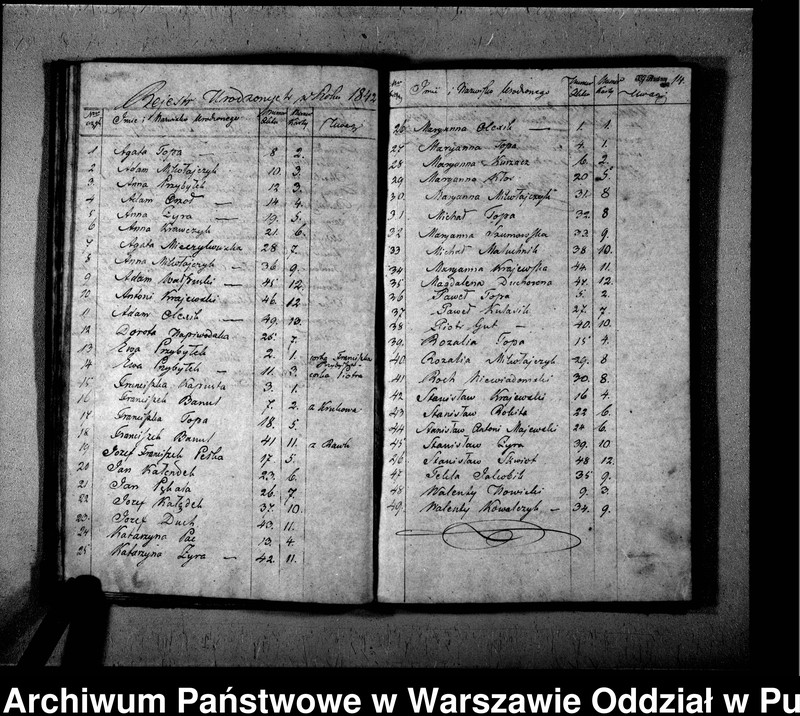 Rejestr Urodzonych w Roku 1842
Imie i Nazwisko Urodzonego Numer Aktu Numer Karty Uwagi
1 Agata Topa 8 2.
2 Adam Mikołajczyk 10 3.
3 Anna Przybyłek 12 3.
4 Adam 14 4.
5 Anna Zyra — 19. 5.
6 Anna Krawczyk 21. 6.
7 Agata 28 7.
8 Anna Mikołajczyk 36 9.
9 Adam — 45 12.
10 Antoni Krajewski 46 12
11 Adam Olczik — 49. 13.
12 Dorota 25. 7.
13 Ewa Przybyłek 2. 1. córka Franciszka
14 Ewa Przybyłek — 11. 3. córka Piotra
15 Franciszka Kapusta 3. 1.
16 Franciszek Banut 7. 2. z Krukowa
17 Franciszka Topa 18. 5.
18 Franciszek Banut 41 11. z Rawki
19 Jozef Franciszek Pełka 17 5.
20 Jan Kałendek 23. 6.
21 Jan Pękala 26. 7
22 Jozef 37. 10.
23. Jozef Duch 43. 11.
24 Katarzyna Pac 13. 4.
25 Katarzyna Zyra — 42. 11.
14.
Imie i Nazwisko Urodzonego Numer Aktu Numer Karty Uwagi
26 Maryanna Olczik — 1. 1.
27 Maryanna Topa 4. 1.
28 Maryanna Kuracz 6. 2.
29 Maryanna Kłos 20 5
30. Maryanna Mikołajczyk 31. 8
31 Michał Topa 32. 8
32 Maryanna Szumowska 33. 9.
33 Michał Maluchnik 38 10.
34 Maryanna Krajewska 44. 11.
35 Magdalena Duchowna 47. 12.
36 Paweł Topa 5. 2.
37 Paweł Kulasik 27. 7.
38 Piotr Gut — 40. 10.
39. Rozalia Topa 15 4.
40 Rozalia Mikołajczyk 29. 8
41 Roch Niewiadomski 30. 8.
42 Stanisław Krajewski 16 4.
43 Stanisław Rokita 22 6.
44 Stanisław Antoni Majewski 24 6.
45 Stanisław Zyra 39. 10
46 Stanisław 48. 12.
47 Tekla Jakubik 35 9.
48 Walenty Nowicki 9. 3.
49. Walenty Kowalczyk — 34. 9.
Archiwum Państwowe w Warszawie Oddział w Pu